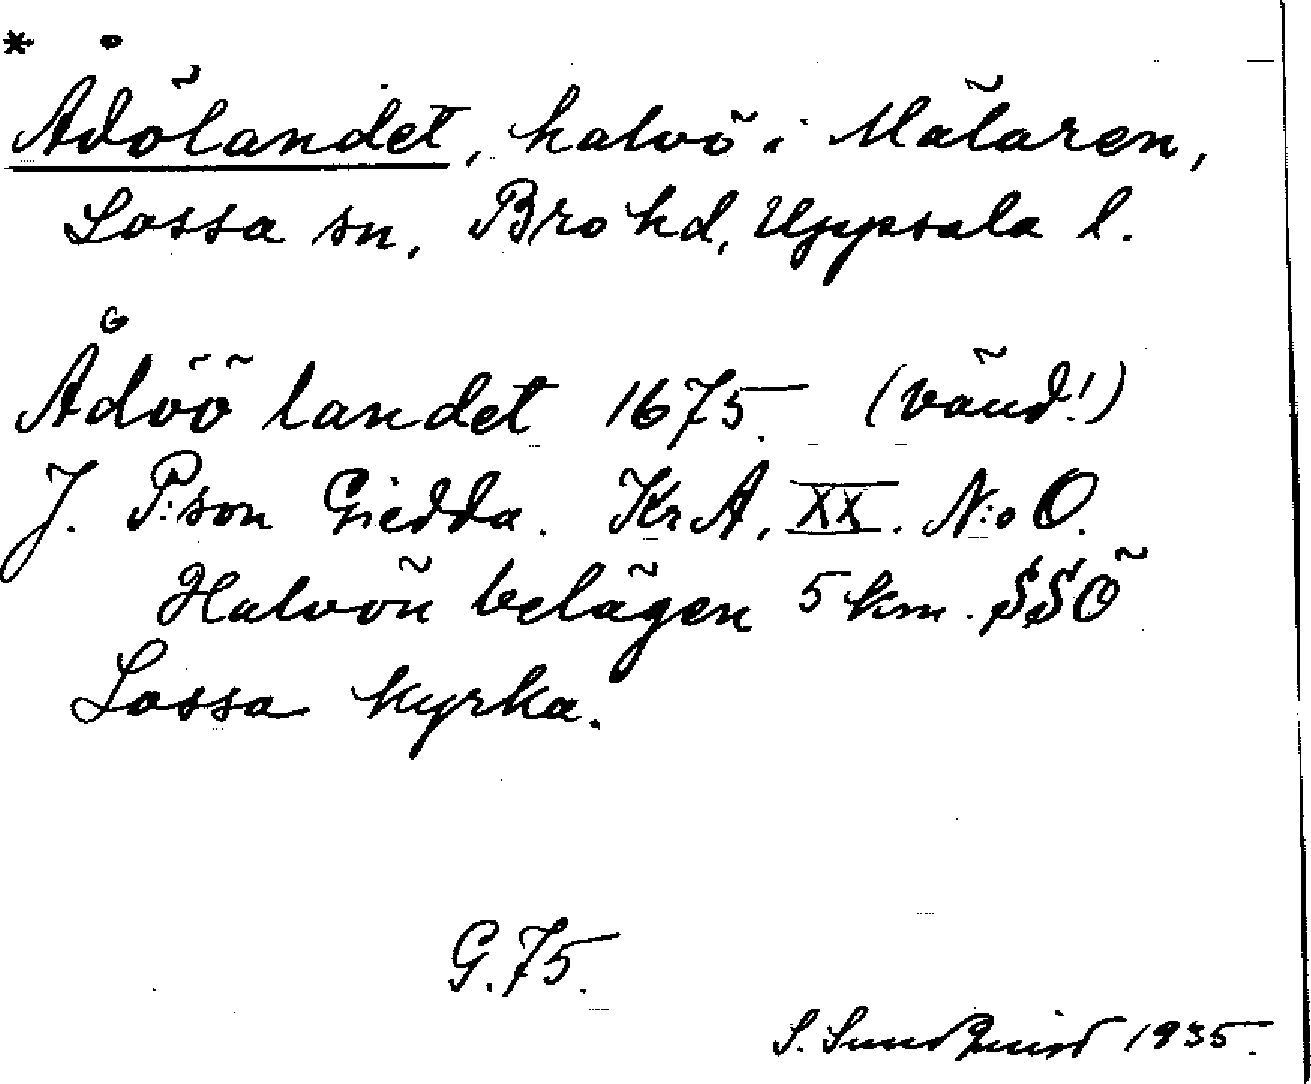 * Ådölandet, halvö i Mälaren,
Lossa sn, Bro hd, Uppsala l.
Ådöö landet 1675. (vänd!)
J. P:son Giedda. KrA, XX. N:o O.
Halvön belägen 5 km. SSÖ
Lossa kyrka.
G.75.
S. Sundquist 1935.